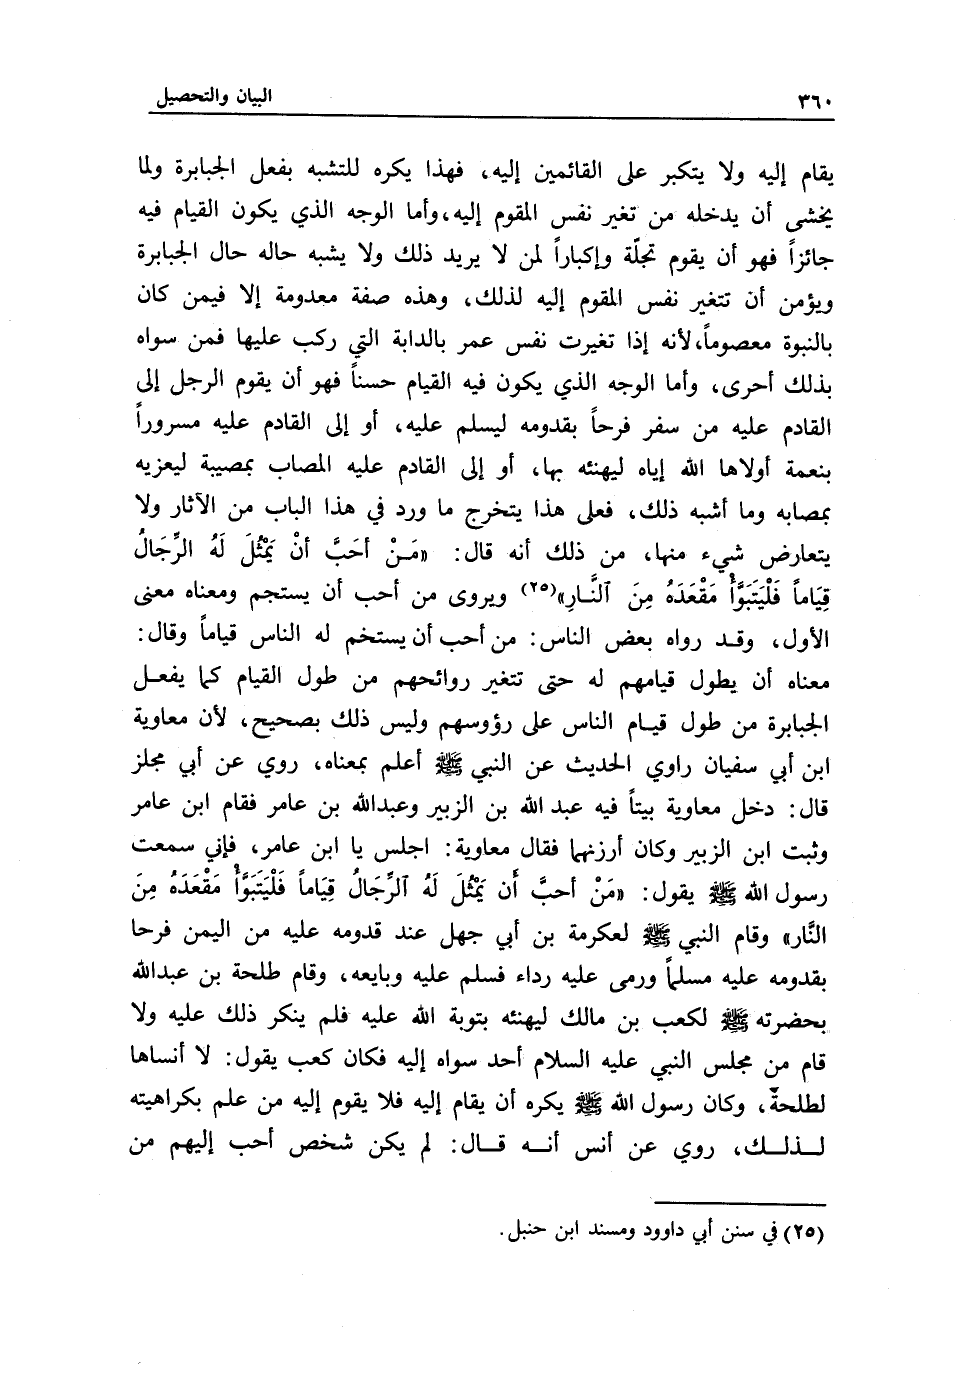 ٣٦٠
البيان والتحصيل
يقام إليه ولا يتكبر على القائمين إليه، فهذا يكره للتشبه بفعل الجبابرة ولما
يخشى أن يدخله من تغير نفس المقوم إليه، وأما الوجه الذي يكون القيام فيه
جائزاً فهو أن يقوم تجلّة وإكباراً لمن لا يريد ذلك ولا يشبه حاله حال الجبابرة
ويؤمن أن تتغير نفس المقوم إليه لذلك، وهذه صفة معدومة إلا فيمن كان
بالنبوة معصوماً، لأنه إذا تغيرت نفس عمر بالدابة التي ركب عليها فمن سواه
بذلك أحرى، وأما الوجه الذي يكون فيه القيام حسناً فهو أن يقوم الرجل إلى
القادم عليه من سفر فرحاً بقدومه ليسلم عليه، أو إلى القادم عليه مسروراً
بنعمة أولاها الله إياه ليهنئه بها، أو إلى القادم عليه المصاب بمصيبة ليعزيه
بمصابه وما أشبه ذلك، فعلى هذا يتخرج ما ورد في هذا الباب من الآثار ولا
يتعارض شيء منها، من ذلك أنه قال: «مَـنْ أحَبَّ أنْ يَمْثُلَ لَهُ الرِّجَالُ
قِيَاماً فَلْيَتَبَوَّأْ مَقْعَدَهُ مِنَ ٱلنَّارِ»(٢٥) ويروى من أحب أن يستجم ومعناه معنى
الأول، وقـد رواه بعض الناس: من أحب أن يستخم له الناس قياماً وقال:
معناه أن يطول قيامهم له حتى تتغير روائحهم من طول القيام كما يفعـل
الجبابرة من طول قيـام الناس على رؤوسهم وليس ذلك بصحيح، لأن معاوية
ابن أبي سفيان راوي الحديث عن النبي ﷺ أعلم بمعناه، روي عن أبي مجلز
قال: دخل معاوية بيتاً فيه عبد الله بن الزبير وعبدالله بن عامر فقام ابن عامر
وثبت ابن الزبير وكان أرزنهما فقال معاوية: اجلس يا ابن عامر، فإني سمعت
رسول الله ﷺ يقول: «مَنْ أحبَّ أَن يَمْثُلَ لَهُ ٱلرِّجَالُ قِيَاماً فَلْيَتَبَوَّأْ مَقْعَدَهُ مِنَ
النَّار» وقام النبي ﷺ لعكرمة بن أبي جهل عند قدومه عليه من اليمن فرحا
بقدومه عليه مسلماً ورمى عليه رداء فسلم عليه وبايعه، وقام طلحة بن عبدالله
بحضرته ﷺ لكعب بن مالك ليهنئه بتوبة الله عليه فلم ينكر ذلك عليه ولا
قام من مجلس النبي عليه السلام أحد سواه إليه فكان كعب يقول: لا أنساها
لطلحة، وكان رسول الله ﷺ يكره أن يقام إليه فلا يقوم إليه من علم بكراهيته
لـذلـك، روي عن أنس أنـه قـال: لم يكن شخص أحب إليهم من
(٢٥) في سنن أبي داوود ومسند ابن حنبل.